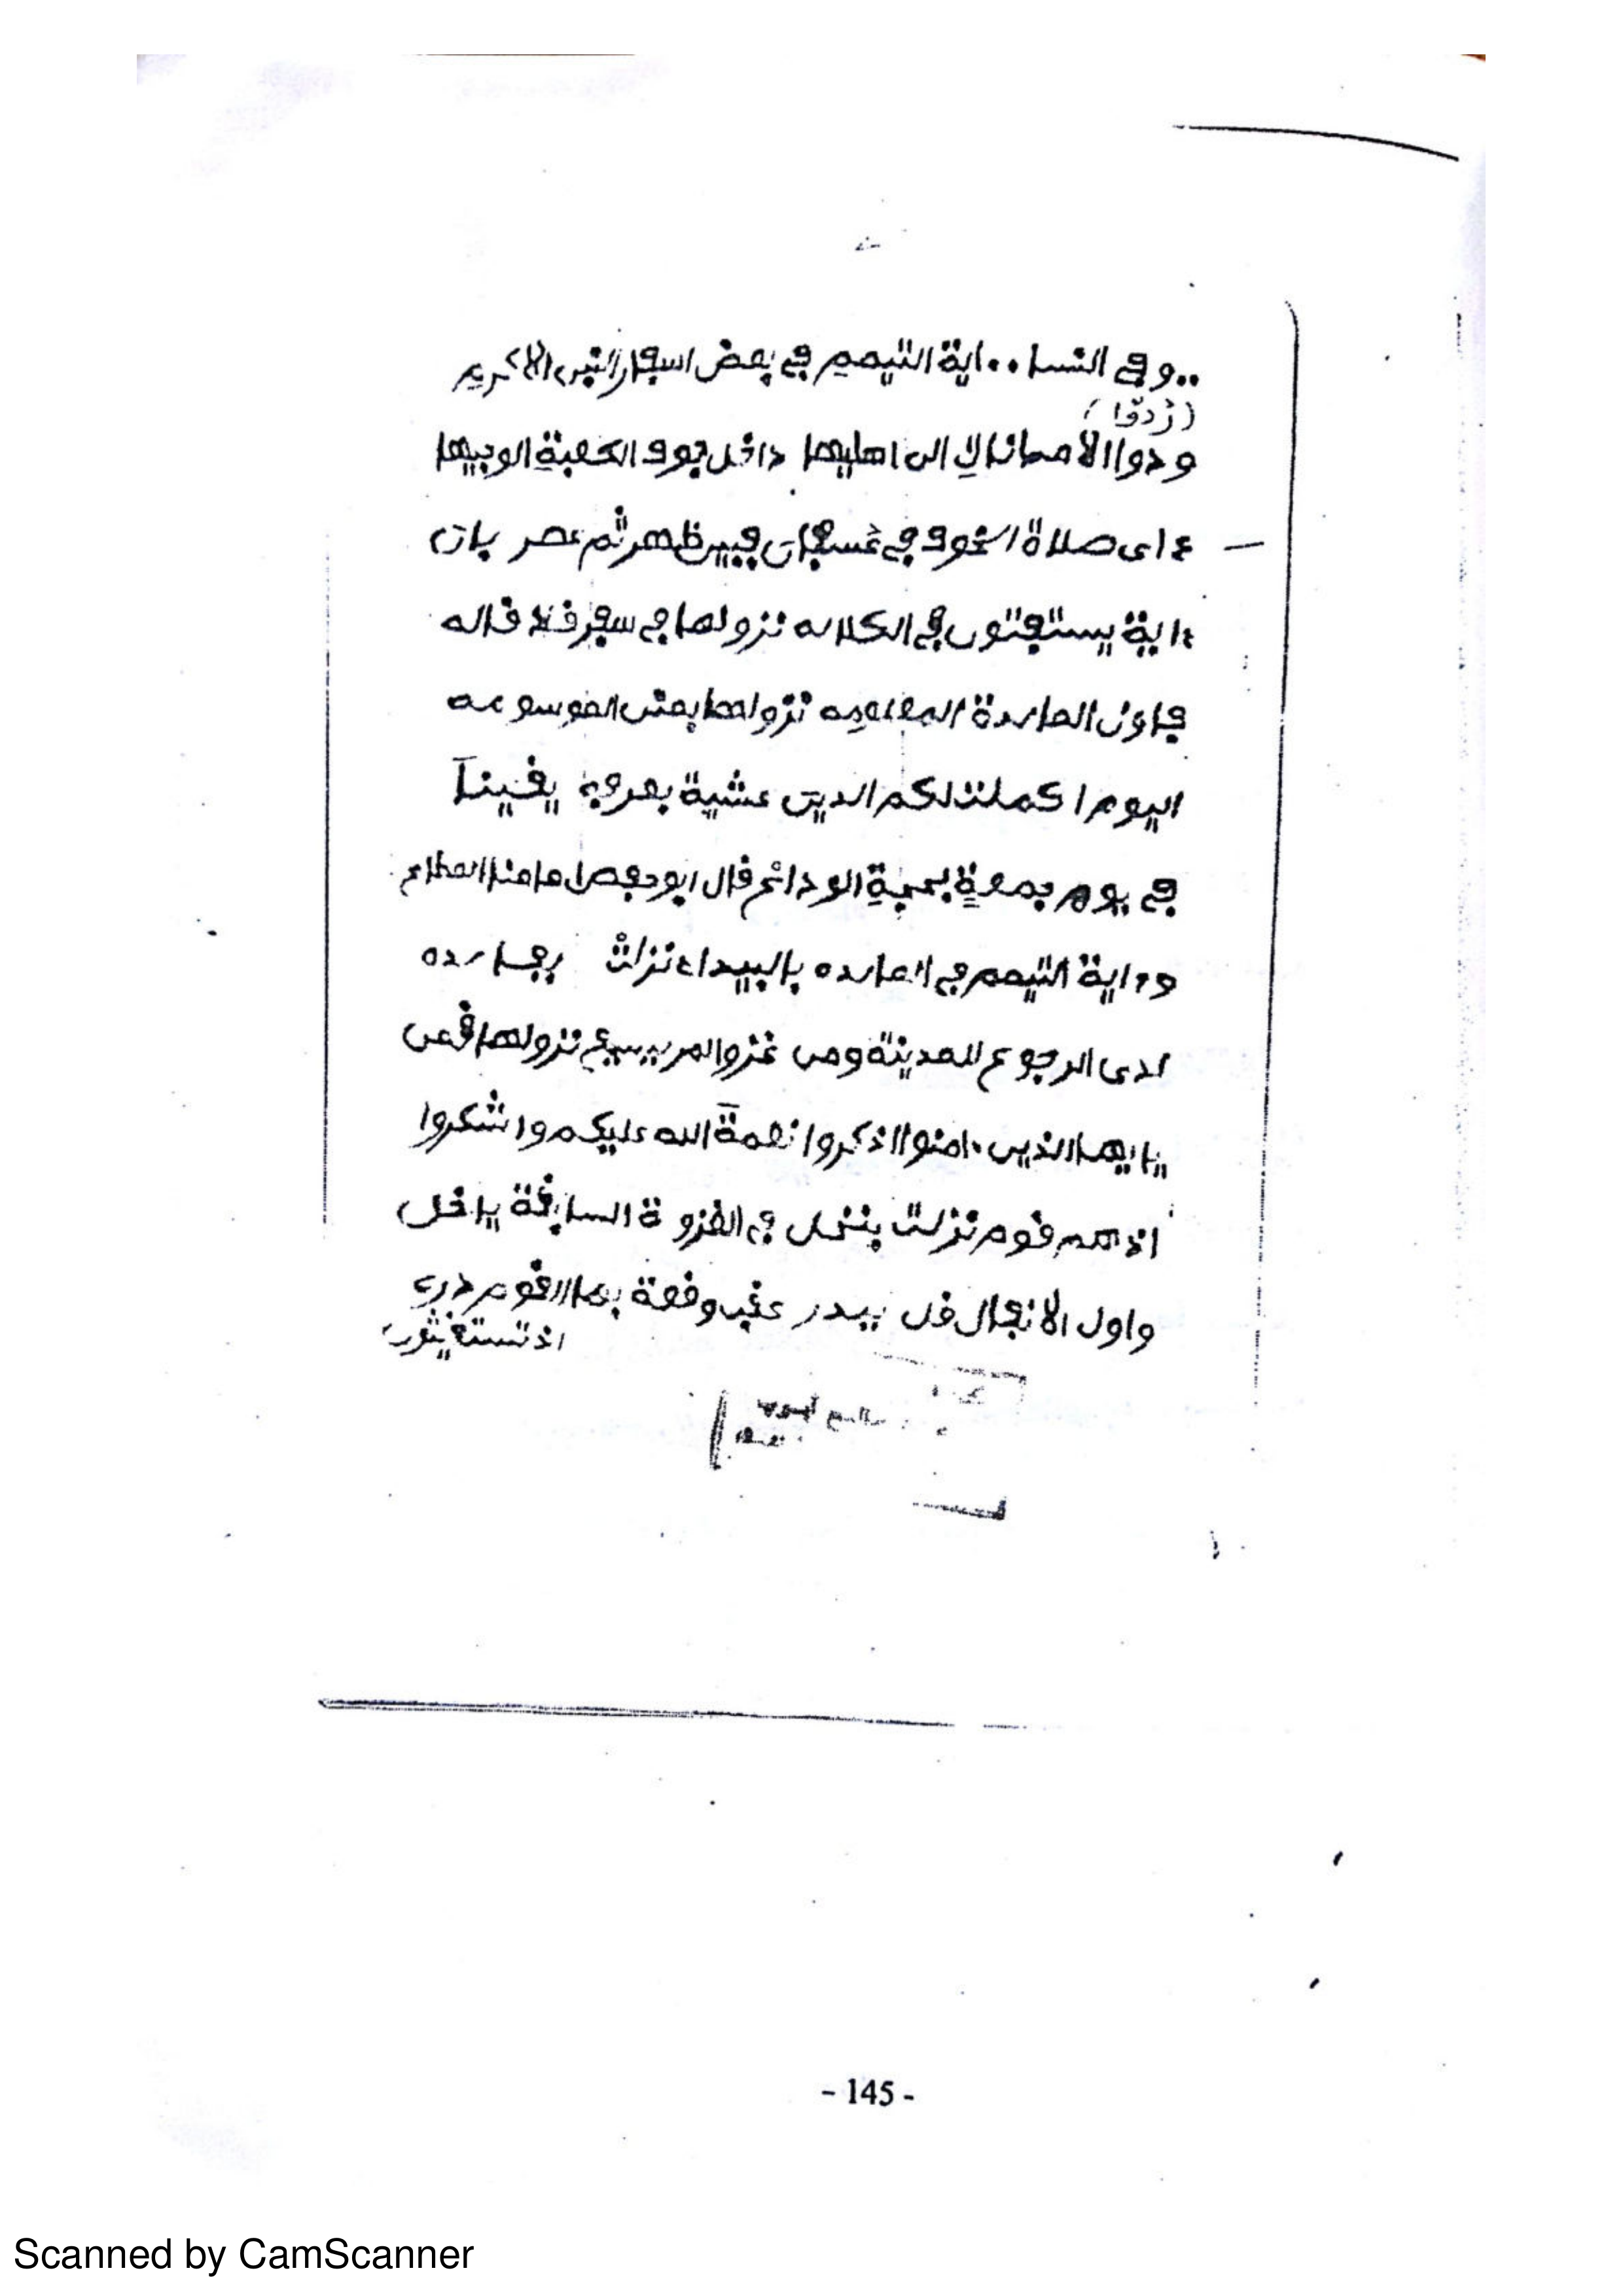 ..وفى النسا ..اية التيمم فى بعض اسفار النبى الاكريم
(ردوا)
ودوا الامانا الى اهليها داخل جوف الكعبة الوجيها
ءاى صلاة الخوف فى عسفان فبين ظهر ثم عصر بان
ءاية يستفتون فى الكلاله نزولها فى سفر فلا قاله
فاول المايدة نزولها بمنى الموسومه
اليوم اكملت لكم الدين عشية بعرفه يقينا
فى يوم جمعة بحجة الودائع قال ابو حفص امامنا المطاع
وءاية التيمم فى المايده بالبيداء نزلت
لدى الرجوع للمدينة ومن غزو المريسيع نزولها قمن
يا ايها الذين ءامنوا اذكروا نعمة الله عليكم واشكروا
اذ هم قوم نزلت بنخل فى الغزوة السابقة ياخل
واول الانفال قل ببدر عقب وقعة بها القوم درى
اذ تستغيثون
- 145 -
Scanned by CamScanner